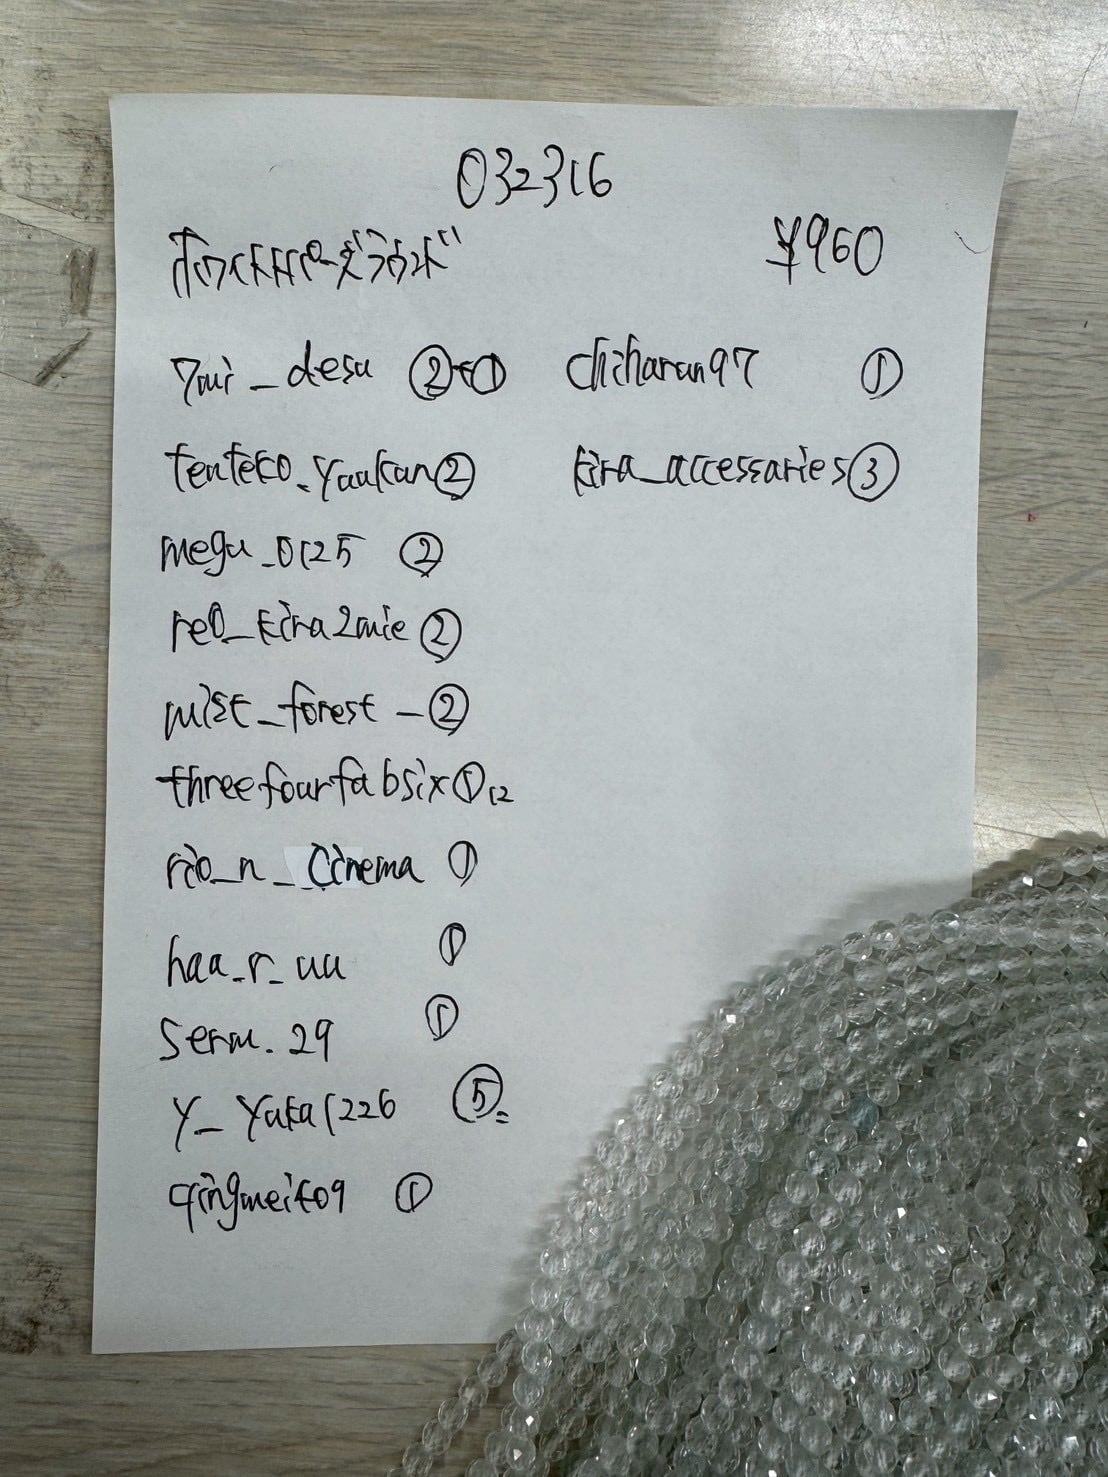 032316
ホワイトトパーズラウンド
¥960
7mi_desu ②+①
tenteko_yaakan②
megu_0125 ②
re0_kira2mie②
mist_forest_②
threefourfabsix①12
rio_n_cinema ①
haa_r_uu ①
serm.29 ①
y_yuka1226 ⑤
qingmeit09 ①
chiharun97 ①
kira_accessaries③